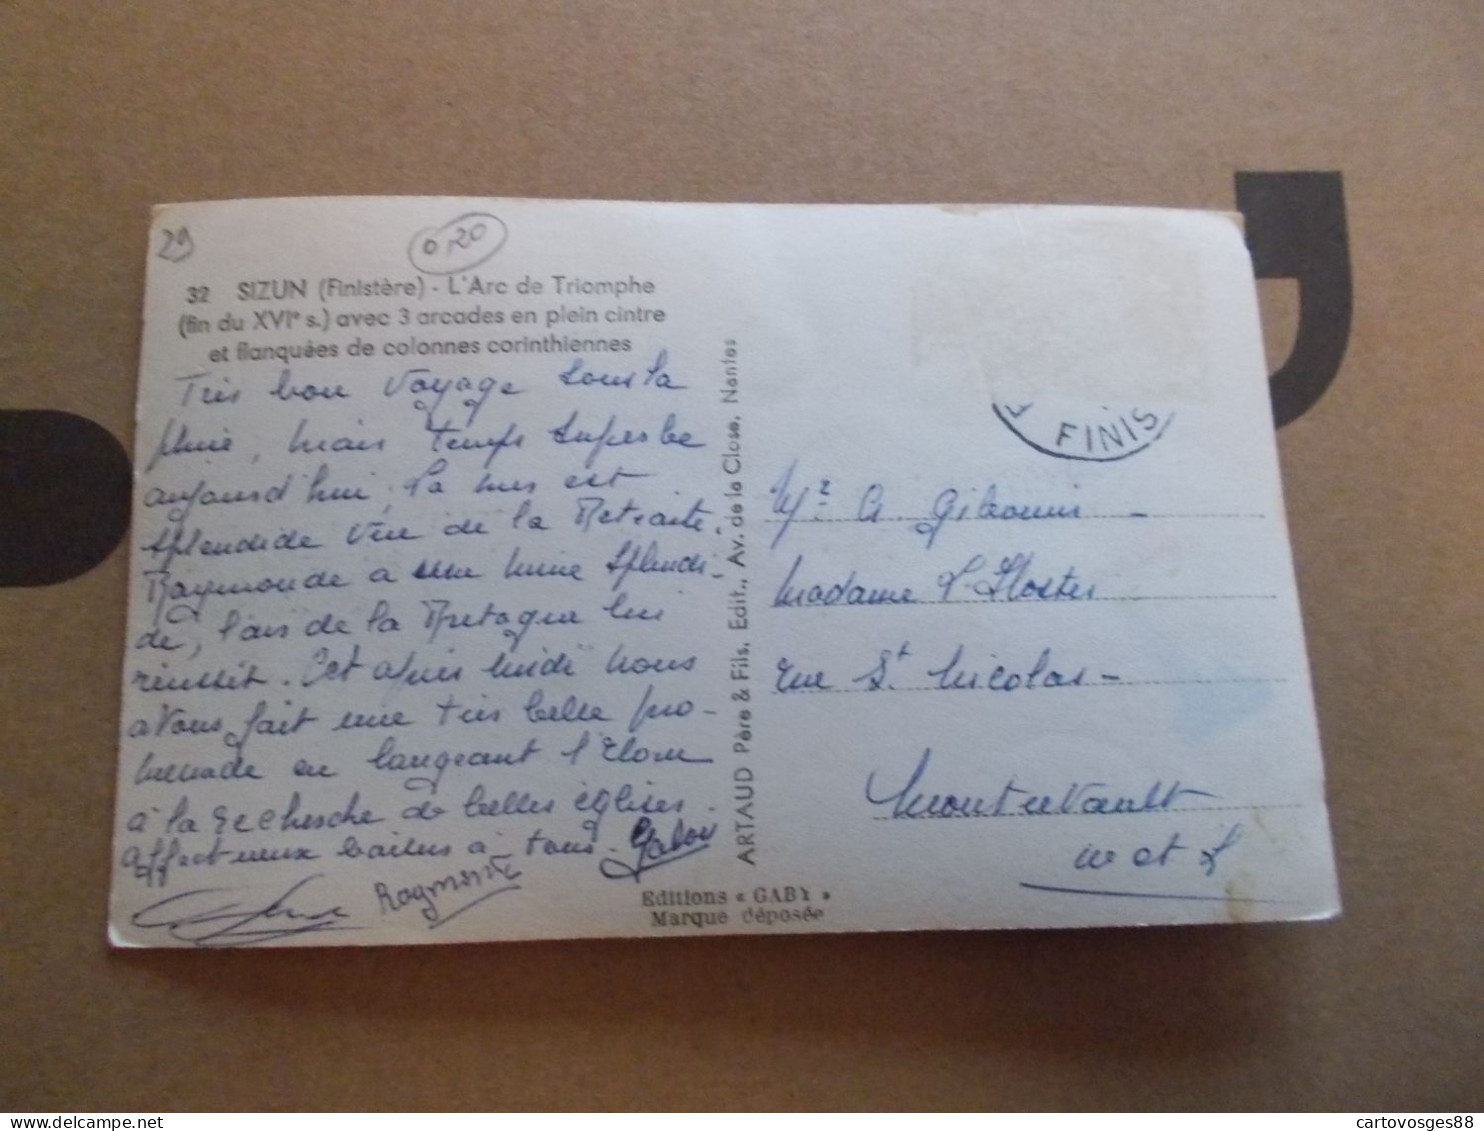 29
0,20
32 SIZUN (Finistère) - L'Arc de Triomphe
(fin du XVIe s.) avec 3 arcades en plein cintre
et flanquées de colonnes corinthiennes
Très bon voyage sous la
pluie, mais temps superbe
aujourd'hui, la mer est
splendide vue de la Retraite.
Raymonde a une mine splendi-
de, l'air de la Bretagne lui
réussit. Cet après midi nous
avons fait une très belle pro-
menade en longeant l'Elorn
à la recherche de belles églises.
Affectueux baisers à tous.
Raymonde
ARTAUD Père & Fils, Edit., Av. de la Close, Nantes
Editions « GABY »
Marque déposée
FINIS
Mr A.
Madame
rue St Nicolas -
Montrevault
M et L
cartovosges88